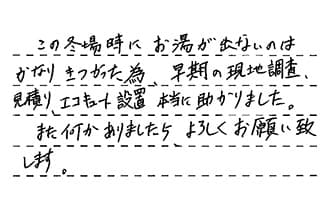 この冬場時に お湯が出ないのは
かなり きつかった為、早期の現地調査、
見積り、エコキュート設置 本当に助かりました。
また何かありましたら、よろしくお願い致
します。